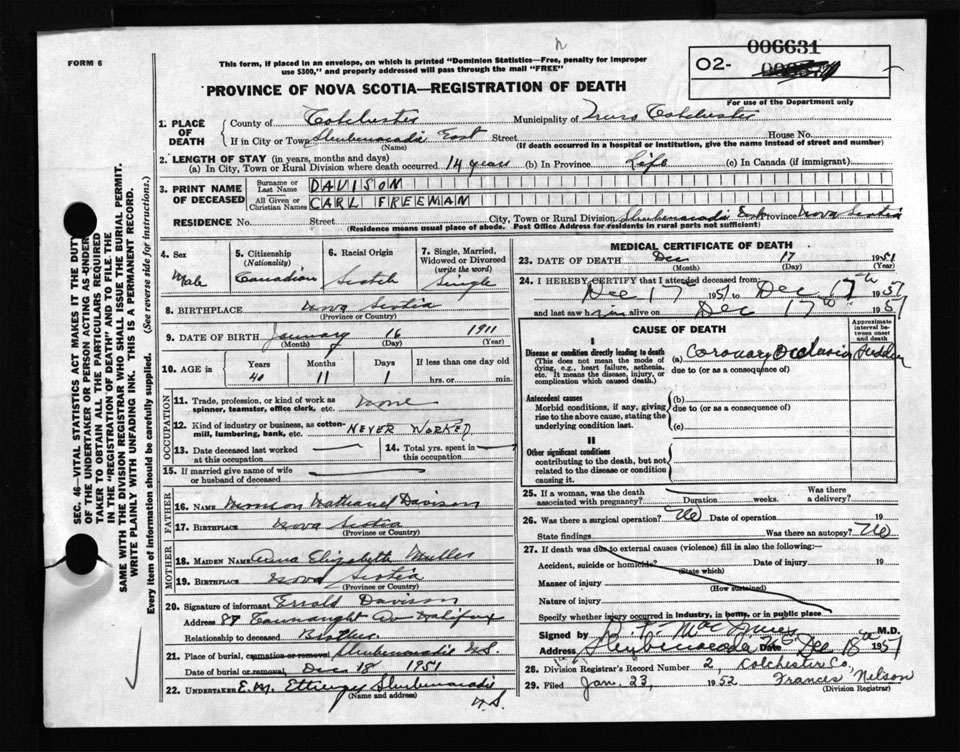 FORM 6
This form, if placed in an envelope, on which is printed "Dominion Statistics—Free, penalty for improper
use $300," and properly addressed will pass through the mail "FREE"
006631
O2-
PROVINCE OF NOVA SCOTIA—REGISTRATION OF DEATH
For use of the Department only
1. PLACE OF DEATH
County of Colchester Municipality of Truro Colchester
If in City or Town Shubenacadie East Street House No.
(Name) (If death occurred in a hospital or institution, give its name instead of street and number)
2. LENGTH OF STAY (in years, months and days)
(a) In City, Town or Rural Division where death occurred 14 years (b) In Province Life (c) In Canada (if immigrant)
3. PRINT NAME OF DECEASED
Surname or Last Name DAVISON
All Given or Christian Names CARL FREEMAN
RESIDENCE No. Street City, Town or Rural Division Shubenacadie East Province Nova Scotia
(Residence means usual place of abode. Post Office Address for residents in rural parts not sufficient)
4. Sex
Male
5. Citizenship
(Nationality)
Canadian
6. Racial Origin
Scotch
7. Single, Married,
Widowed or Divorced
(write the word)
Single
8. BIRTHPLACE Nova Scotia
(Province or Country)
9. DATE OF BIRTH January 16 1911
(Month) (Day) (Year)
10. AGE in
Years Months Days If less than one day old
40 11 1 hrs. or min.
OCCUPATION
11. Trade, profession, or kind of work as
spinner, teamster, office clerk, etc. None
12. Kind of industry or business, as cotton-
mill, lumbering, bank, etc. NEVER WORKED
13. Date deceased last worked
at this occupation
14. Total yrs. spent in
this occupation
15. If married give name of wife
or husband of deceased
FATHER
16. Name Nathaniel Davison
17. Birthplace Nova Scotia
(Province or Country)
MOTHER
18. MAIDEN NAME Elizabeth
19. BIRTHPLACE Nova Scotia
(Province or Country)
20. Signature of informant Errold Davison
Address 87 Connaught Av Halifax
Relationship to deceased Brother
21. Place of burial, cremation or removal Shubenacadie N.S.
Date of burial or removal Dec 18 1951
22. UNDERTAKER E.M. Ettinger Shubenacadie
(Name and address) N.S.
MEDICAL CERTIFICATE OF DEATH
23. DATE OF DEATH Dec 17 1951
(Month) (Day) (Year)
24. I HEREBY CERTIFY that I attended deceased from:
Dec 17 1951 to Dec 17th 1951
and last saw him alive on Dec 17th 1951
CAUSE OF DEATH
Approximate
interval be-
tween onset
and death
I
Disease or condition directly leading to death
(This does not mean the mode of
dying, e.g., heart failure, asthenia,
etc. It means the disease, injury, or
complication which caused death.)
(a) Coronary Occlusion Sudden
due to (or as a consequence of)
Antecedent causes
Morbid conditions, if any, giving
rise to the above cause, stating the
underlying condition last.
(b)
due to (or as a consequence of)
(c)
II
Other significant conditions
contributing to the death, but not
related to the disease or condition
causing it.
25. If a woman, was the death
associated with pregnancy? Duration weeks. Was there
a delivery?
26. Was there a surgical operation? No Date of operation 19
State findings Was there an autopsy? No
27. If death was due to external causes (violence) fill in also the following:—
Accident, suicide or homicide? Date of injury 19
(State which)
Manner of injury
(How sustained)
Nature of injury
Specify whether injury occurred in industry, in home, or in public place
Signed by M.D.
Address Shubenacadie N.S. Date Dec 18th 1951
28. Division Registrar's Record Number 2, Colchester Co.
29. Filed Jan. 23, 1952 Frances Nelson
(Division Registrar)
SEC. 46—VITAL STATISTICS ACT MAKES IT THE DUTY
OF THE UNDERTAKER OR PERSON ACTING AS UNDER-
TAKER TO OBTAIN ALL THE PARTICULARS REQUIRED
IN THE "REGISTRATION OF DEATH" AND TO FILE THE
SAME WITH THE DIVISION REGISTRAR WHO SHALL ISSUE THE BURIAL PERMIT.
WRITE PLAINLY WITH UNFADING INK. THIS IS A PERMANENT RECORD.
Every item of information should be carefully supplied. (See reverse side for instructions.)